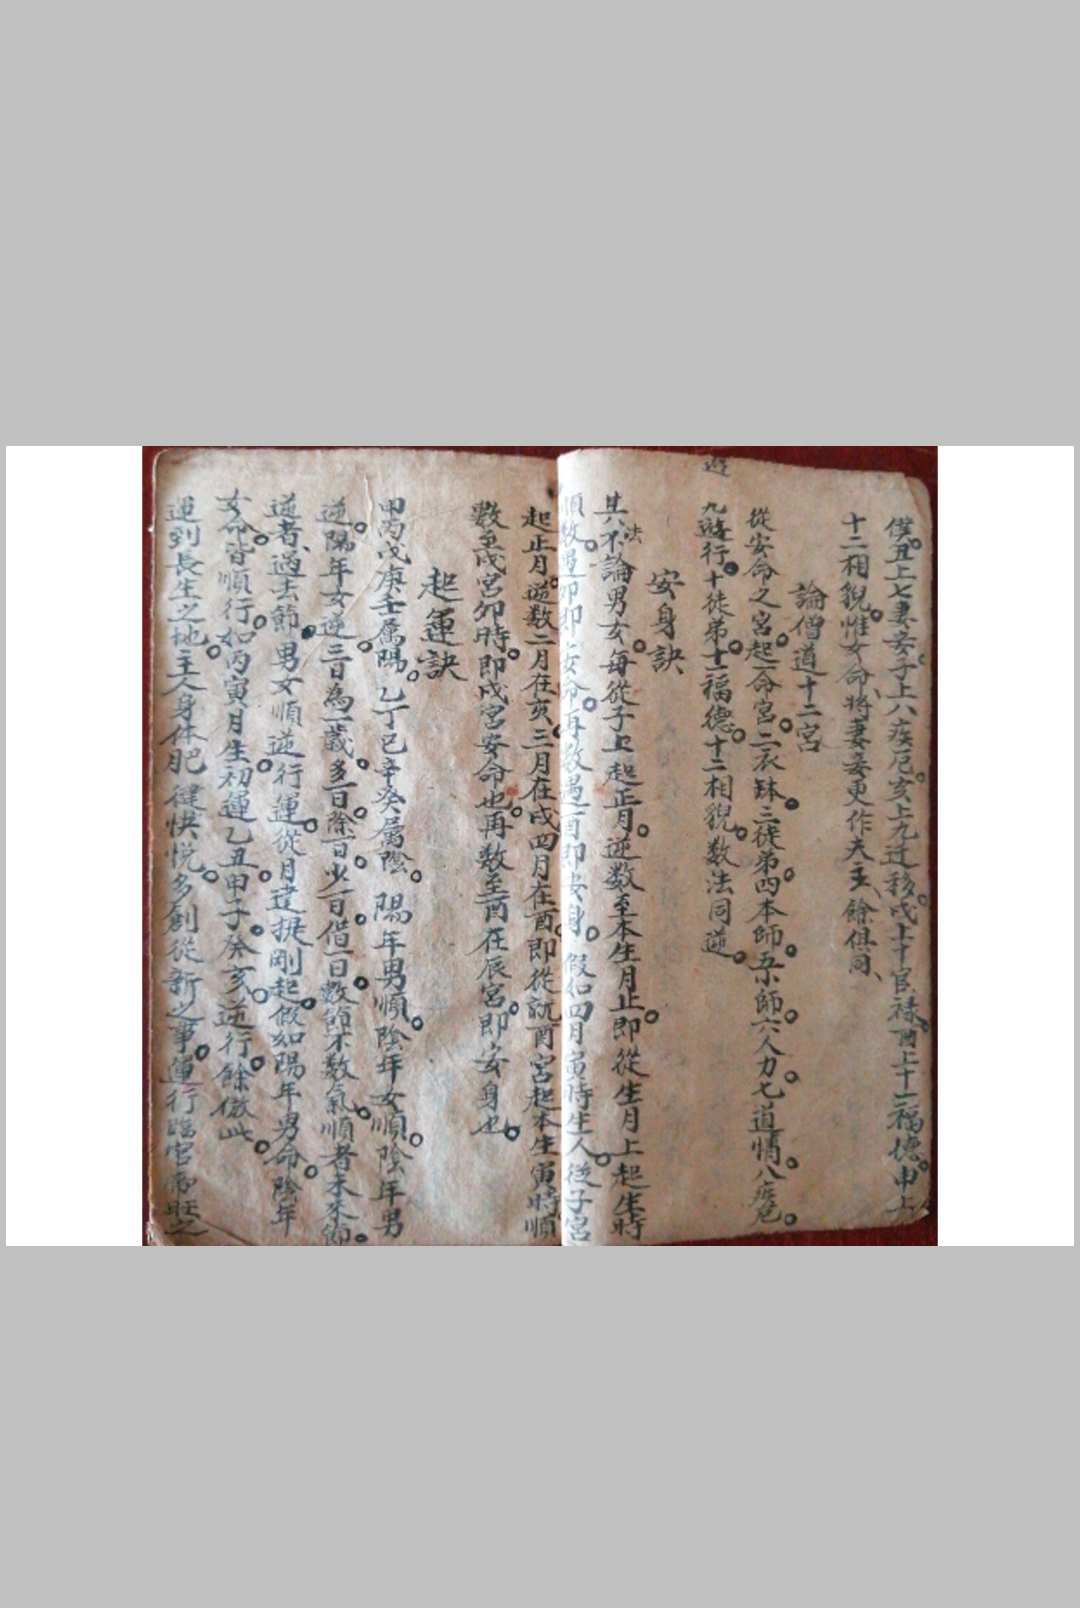 僕。丑上七妻妾。子上八疾厄。亥上九迁移。戌上十官禄。酉上十一福德。申上
十二相貌。惟女命、將妻妾更作夫主、餘俱同、
論僧道十二宮
從安命之宮。起一命宮。二衣鉢。三徒弟。四本師。五小師。六人力。七道情。八疾厄。
九遊行。十徒弟。十一福德。十二相貌。数法同逆。
遊
安身訣
其法不論男女。每從子上起正月。逆数至本生月止。即從生月上起生時
順数。遇卯即安命。再数遇酉即安身。假如四月寅時生人。從子宮
起正月。逆数二月在亥。三月在戌四月在酉。即從訧酉宮起本生寅時順
数至戌宮卯時。即戌宮安命也。再数至酉在辰宮。即安身也。
起運訣
甲丙戊庚壬屬陽。乙丁巳辛癸屬陰。陽年男順。陰年女順。陰年男
逆。陽年女逆。三日為一歲。多一日除一日。少一日借一日。數節不数氣。順者未來節。
逆者、過去節。男女順逆行運。從月建提剛起。假如陽年男命。陰年
女命。皆順行。如丙寅月生。初運乙丑。甲子。癸亥。逆行。餘倣此。
運到長生之地。主人身体肥健快悦。多創從新之事。運行臨官帝旺之